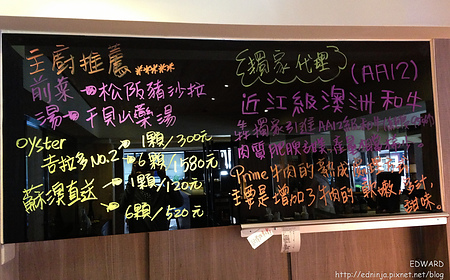 主廚推薦*****
前菜→松阪豬沙拉
湯→干貝山藥湯
oyster
吉拉多No.2→1顆/300元
6顆/1580元
蘇澳直送→1顆/120元
6顆/520元
獨家代理
(AA12)
近江級澳洲和牛
獨家引進AA12
肉質肥腴
Prime牛肉的熟成
主要是增加了牛肉的軟嫩、多汁、
甜味。
EDWARD
http://edninja.pixnet.net/blog